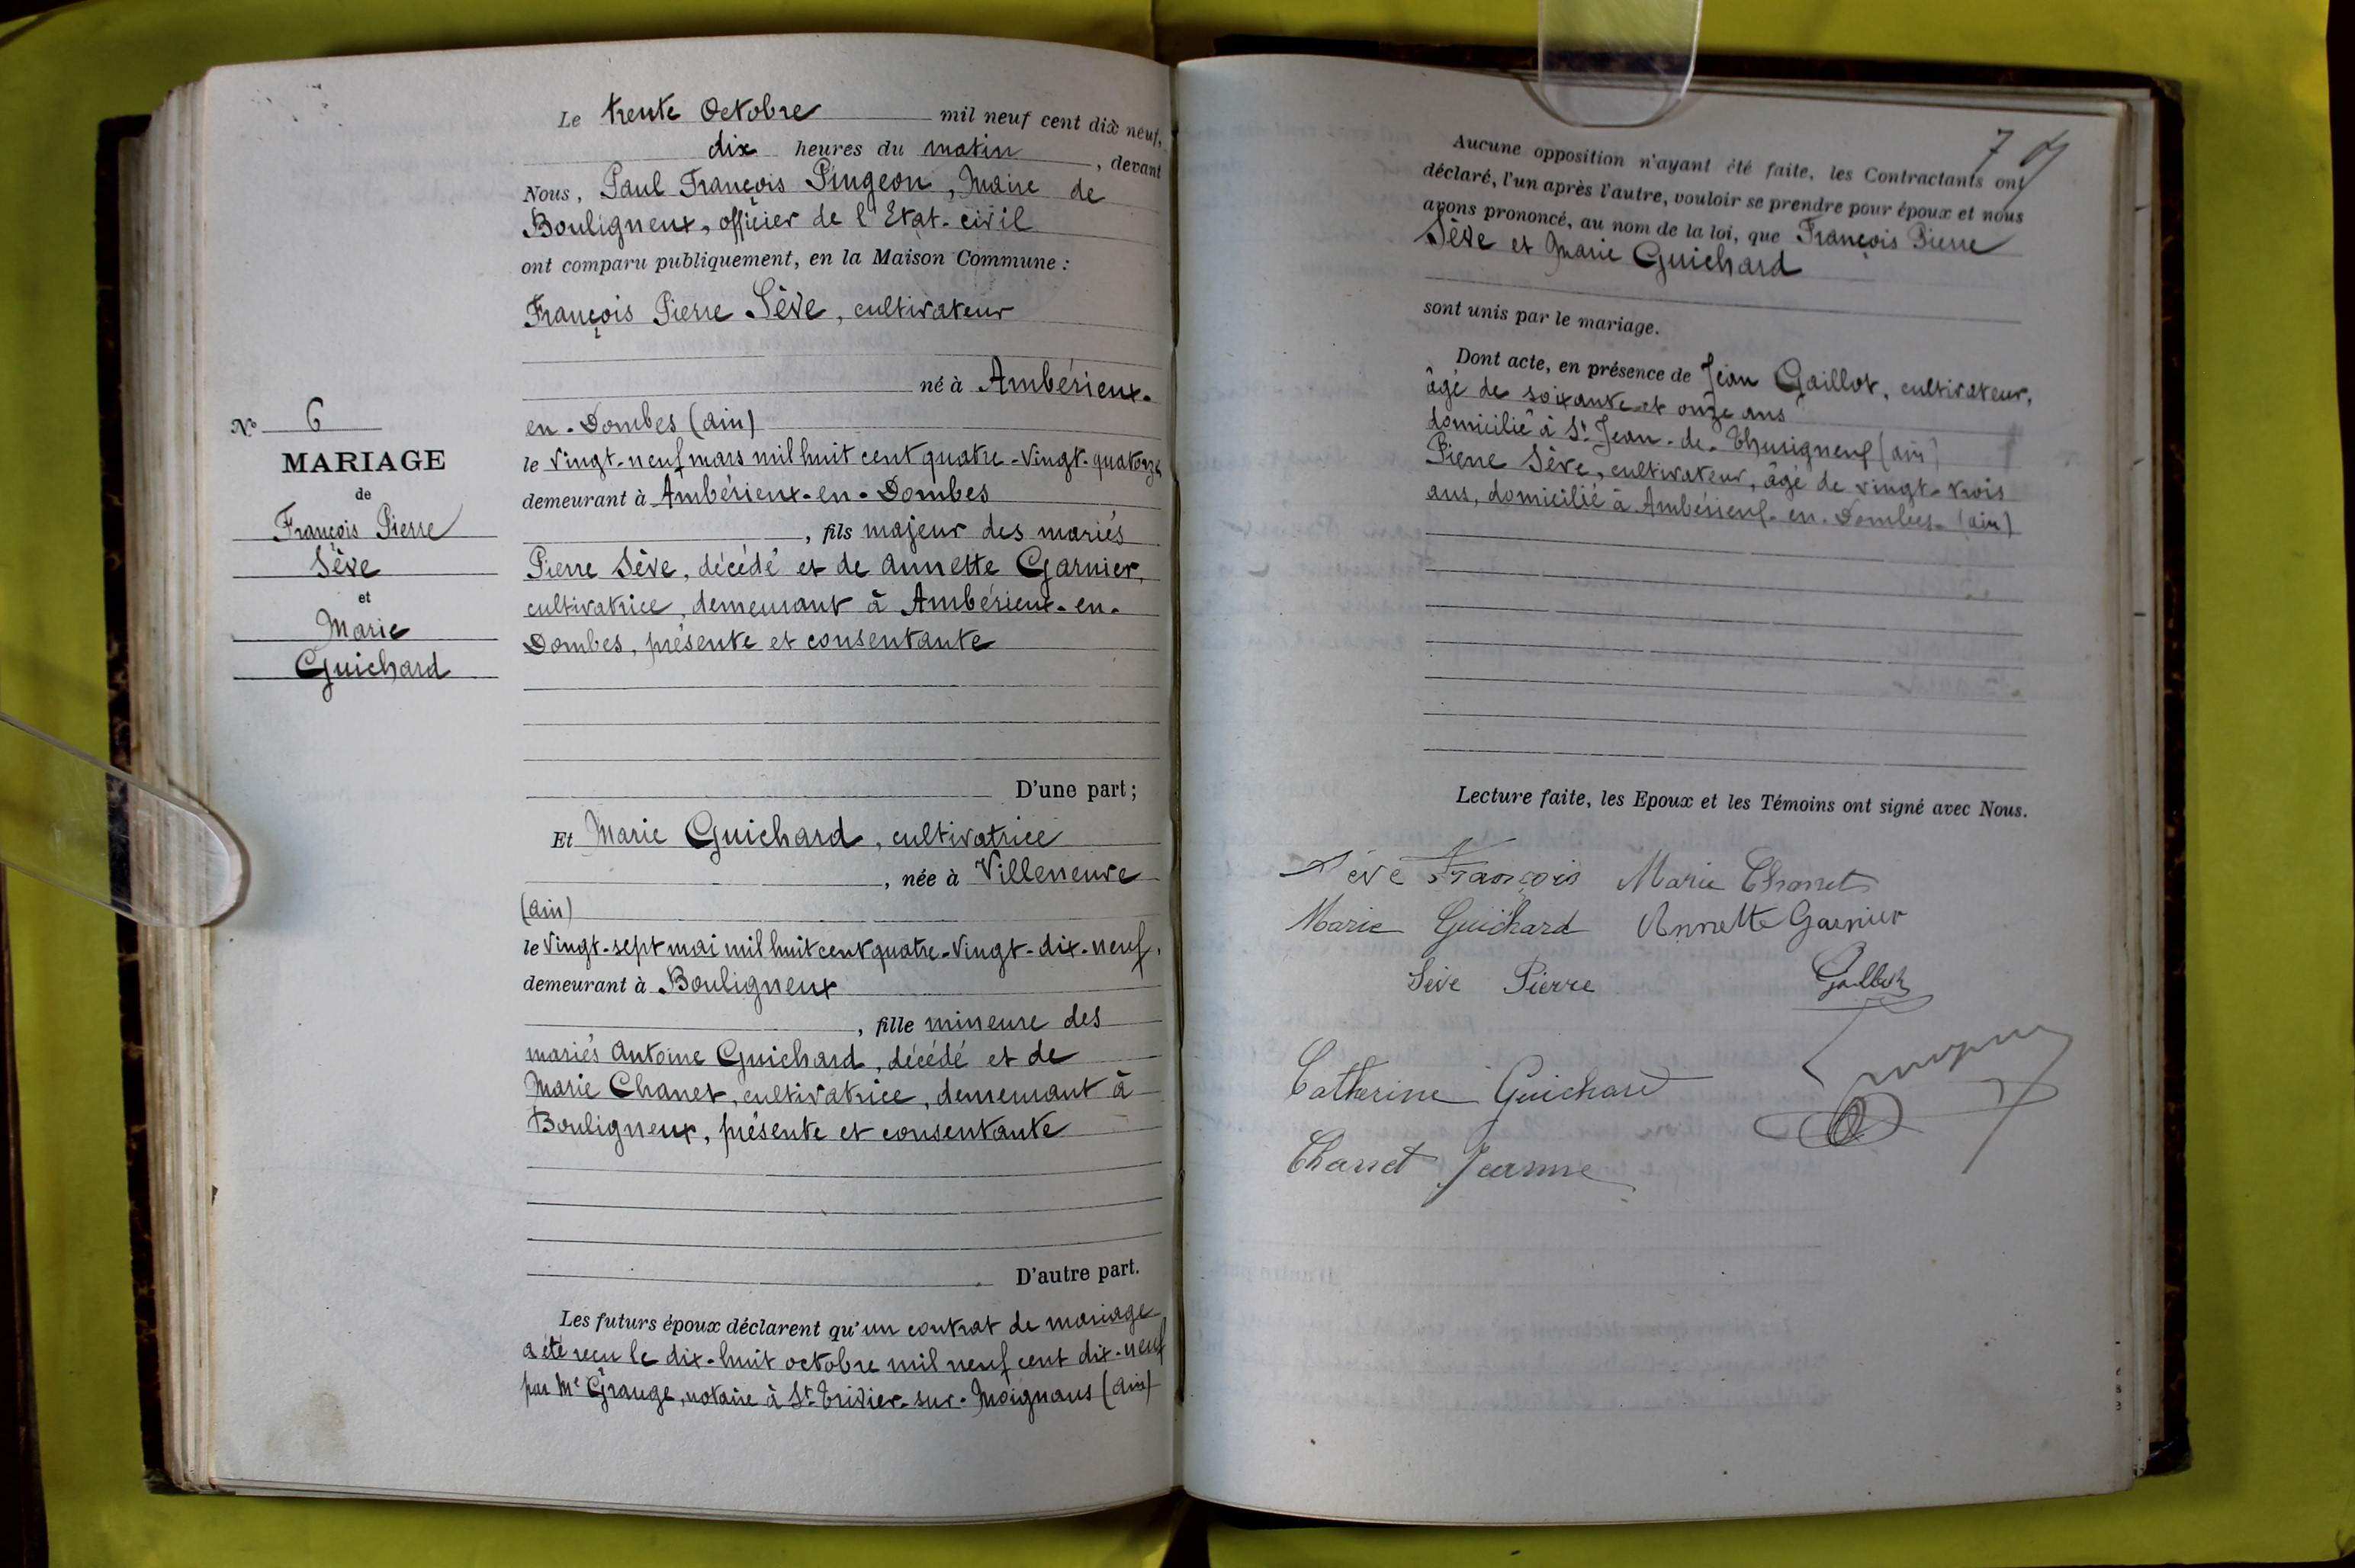 Le trente Octobre mil neuf cent dix neuf,
dix heures du matin, devant
Nous, Paul François Pingeon, Maire de
Bouligneux, officier de l'Etat-civil
ont comparu publiquement, en la Maison Commune :
François Pierre Sève, cultivateur
né à Ambérieux-
en-Dombes (Ain)
le vingt-neuf mars mil huit cent quatre-vingt-quatorze
demeurant à Ambérieux-en-Dombes
, fils majeur des mariés
Pierre Sève, décédé et de Annette Garnier,
cultivatrice, demeurant à Ambérieux-en-
Dombes, présente et consentante
D'une part ;
Nº 6
MARIAGE
de
François Pierre
Sève
et
Marie
Guichard
Et Marie Guichard, cultivatrice
, née à Villeneuve
(Ain)
le vingt-sept mai mil huit cent quatre-vingt-dix-neuf,
demeurant à Bouligneux
, fille mineure des
mariés Antoine Guichard, décédé et de
Marie Chanet, cultivatrice, demeurant à
Bouligneux, présente et consentante
D'autre part.
Les futurs époux déclarent qu'un contrat de mariage
a été reçu le dix-huit octobre mil neuf cent dix-neuf
par Me Grange, notaire à St Trivier-sur-Moignans (Ain)
Aucune opposition n'ayant été faite, les Contractants ont
déclaré, l'un après l'autre, vouloir se prendre pour époux et nous
avons prononcé, au nom de la loi, que François Pierre
Sève et Marie Guichard
sont unis par le mariage.
Dont acte, en présence de Jean Gaillot, cultivateur,
âgé de soixante et onze ans
domicilié à St Jean-de-Thurigneuf (Ain)
Pierre Sève, cultivateur, âgé de vingt-trois
ans, domicilié à Ambérieux-en-Dombes (Ain)
Lecture faite, les Epoux et les Témoins ont signé avec Nous.
Sève François Marie Chanet
Marie Guichard Annette Garnier
Sève Pierre Gaillot
Catherine Guichard
Chanet Jeanne